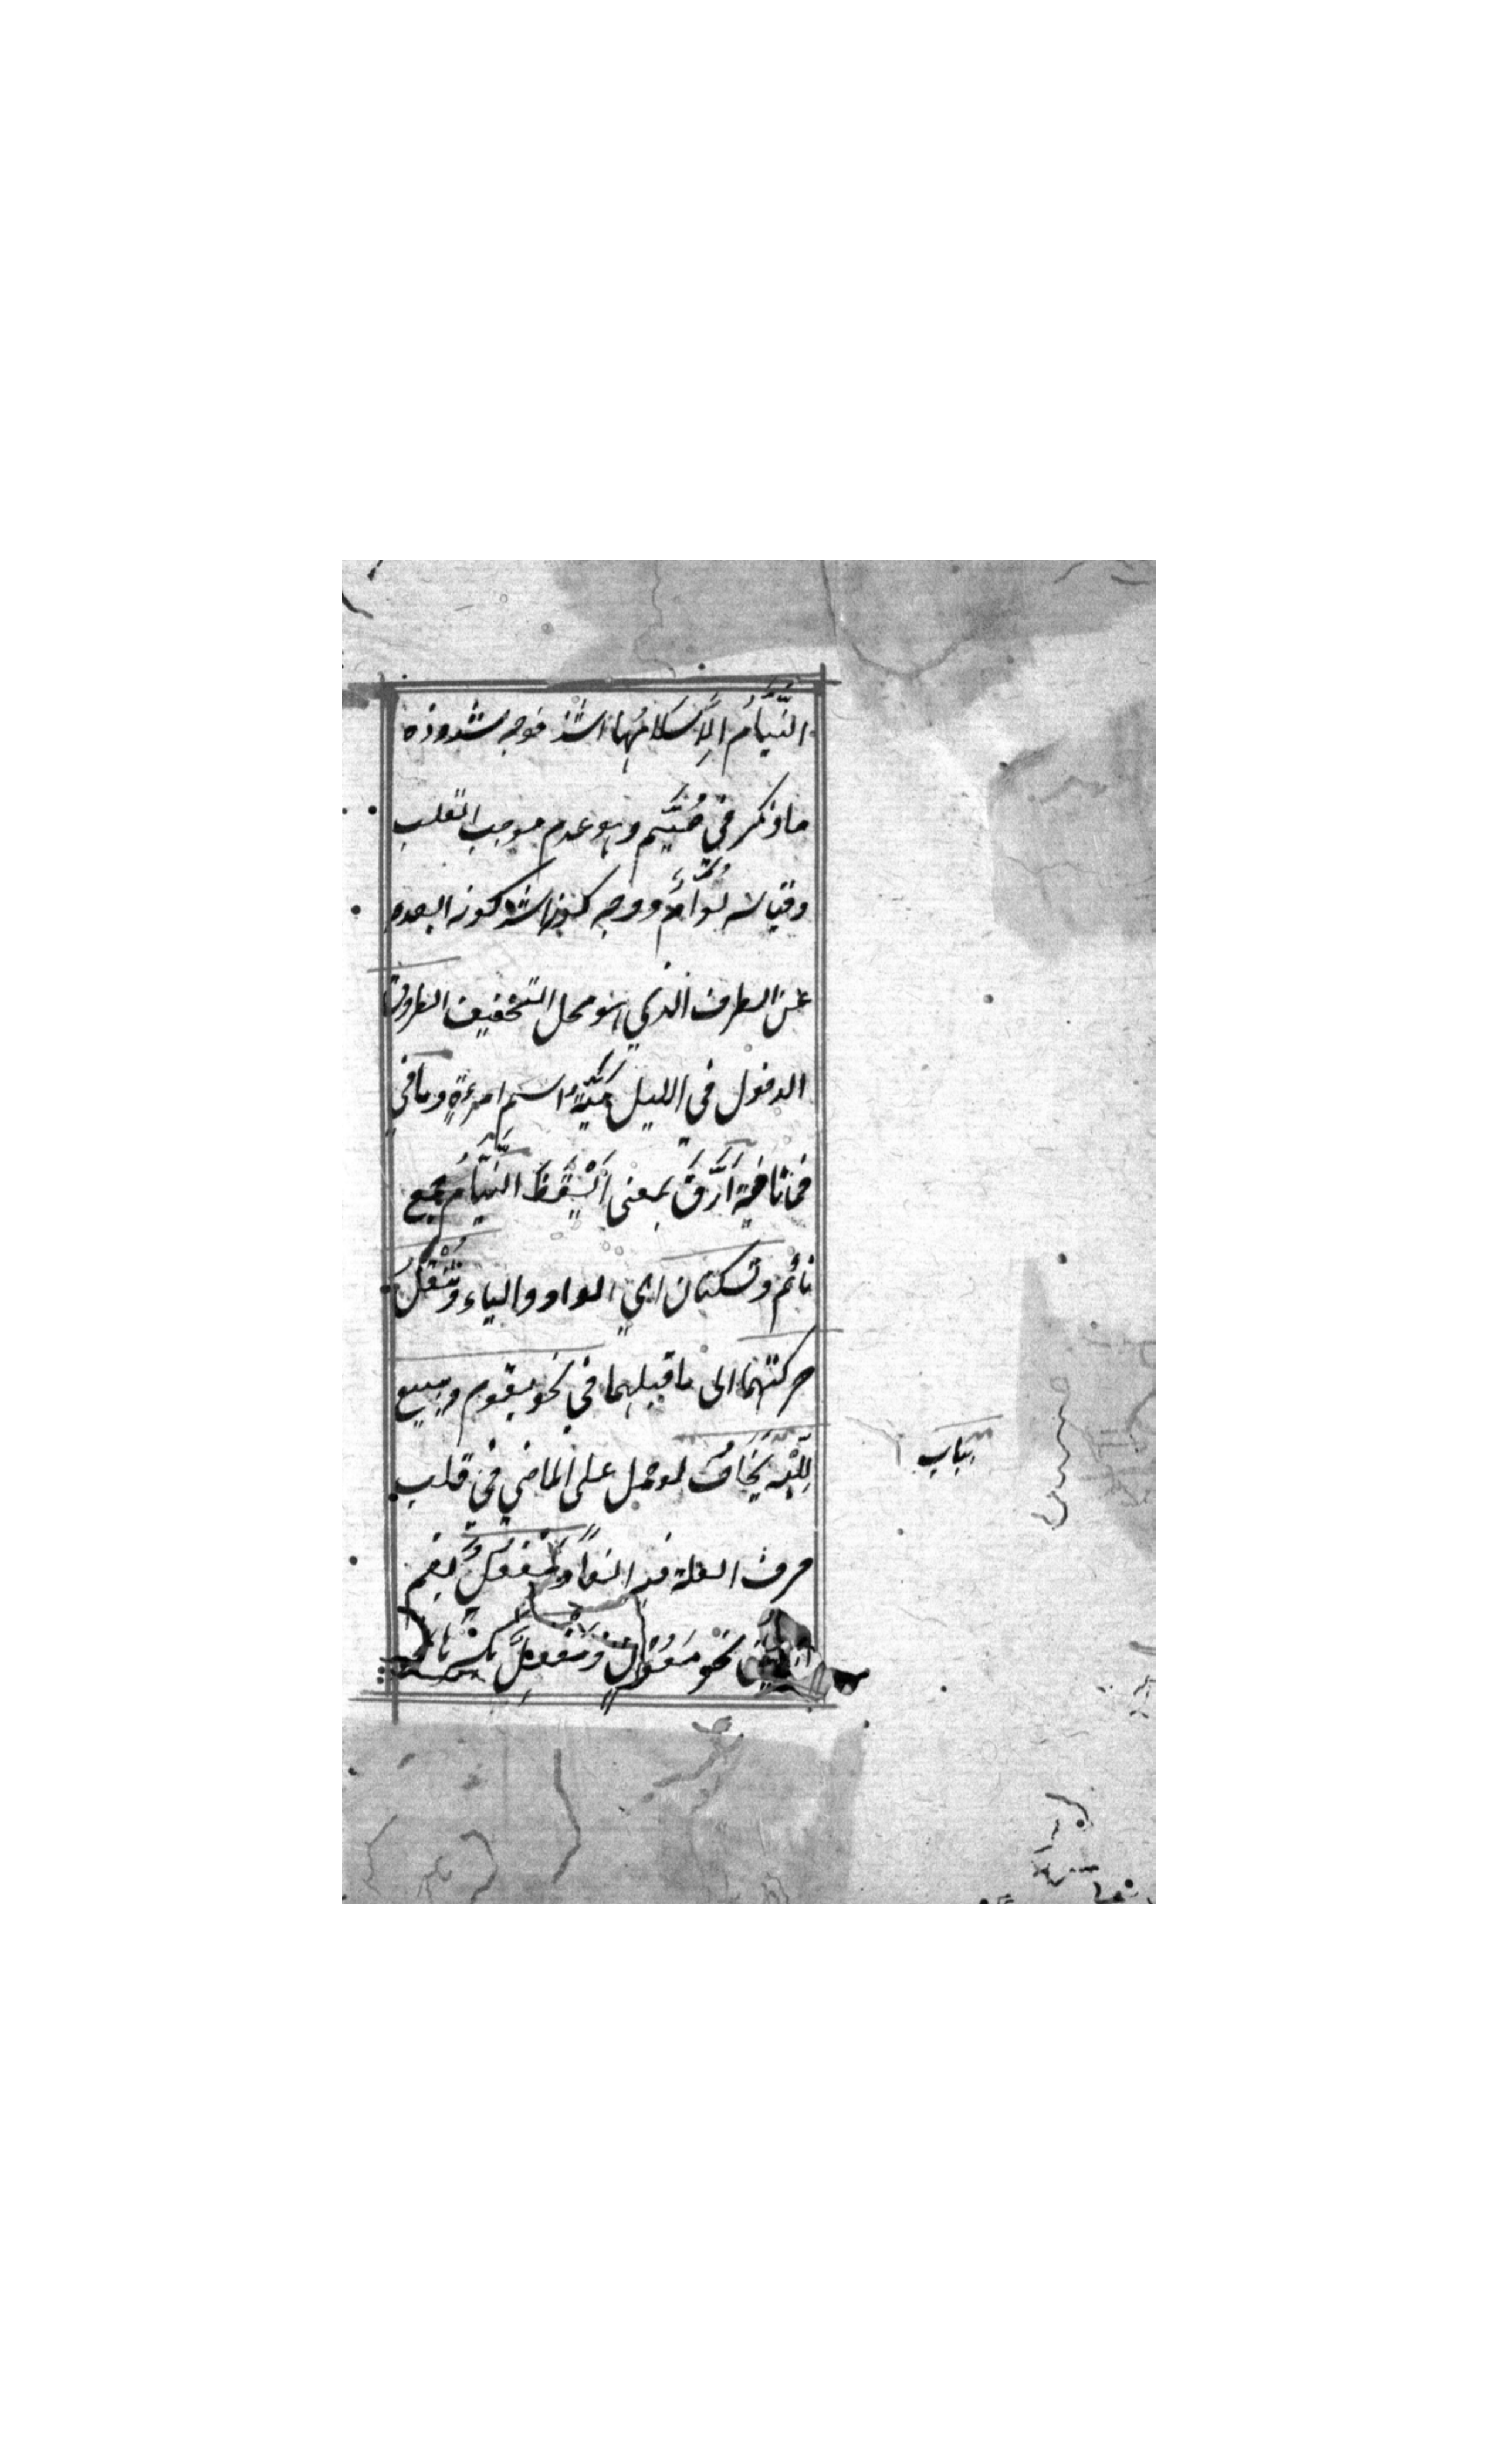 النُّيَّامُ اِلَّا سَلَامُهَا اشذ فوجه شذوذه
ما ذكر في صُيَّم وهو عدم موجب القلب
وقياسه نُوَّامٌ ووجه كونها اشذ كونه ابعد
عن الطرف الذي هو محل التخفيف الطروق
الدخول في الليل مَيَّةُ اسم امرءةٍ وما في
فما نافية اَرَّقَ بمعنى اَيْقَظَ النُّيَّامُ جمع
نائم وتسكنان اي الواو والياء وتُنْقَلُ
حركتهما الى ما قبلهما في نحو يقوم ويبيع
لِلَبْسِه يَخَافُ لو حمل على الماضي في قلب
حرف العلة فيه الفاً ومَفْعُلٌ بضم
العين نحو مَعُوْنٍ ومَفْعِلٌ بكسرها
بباب